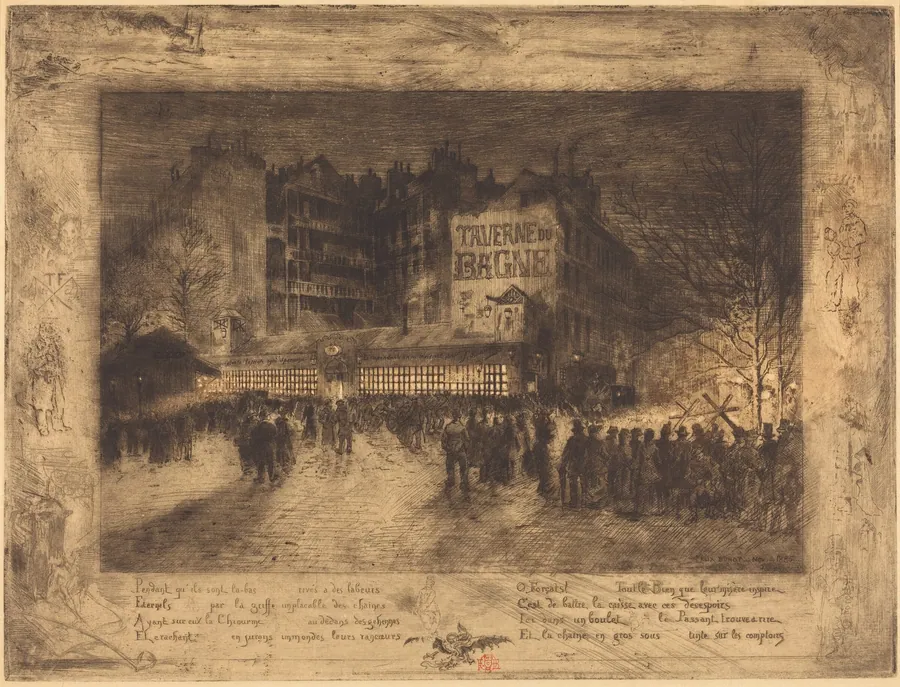 TAVERNE DU
BAGNE
TF
Pendant qu'ils sont la-bas rivés a des labeurs
Eternels par la griffe implacable des chaines
Ayant sur eux la Chiourme au dedans des gehennes
Et crachent en jurons immondes leurs rancœurs
O Forçats! Tout le Bien que leur misère inspire
C'est de battre la caisse avec ces desespoirs
Ici dans un boulet le Passant trouve a rire
Et la chaine en gros sous tinte sur les comptoirs